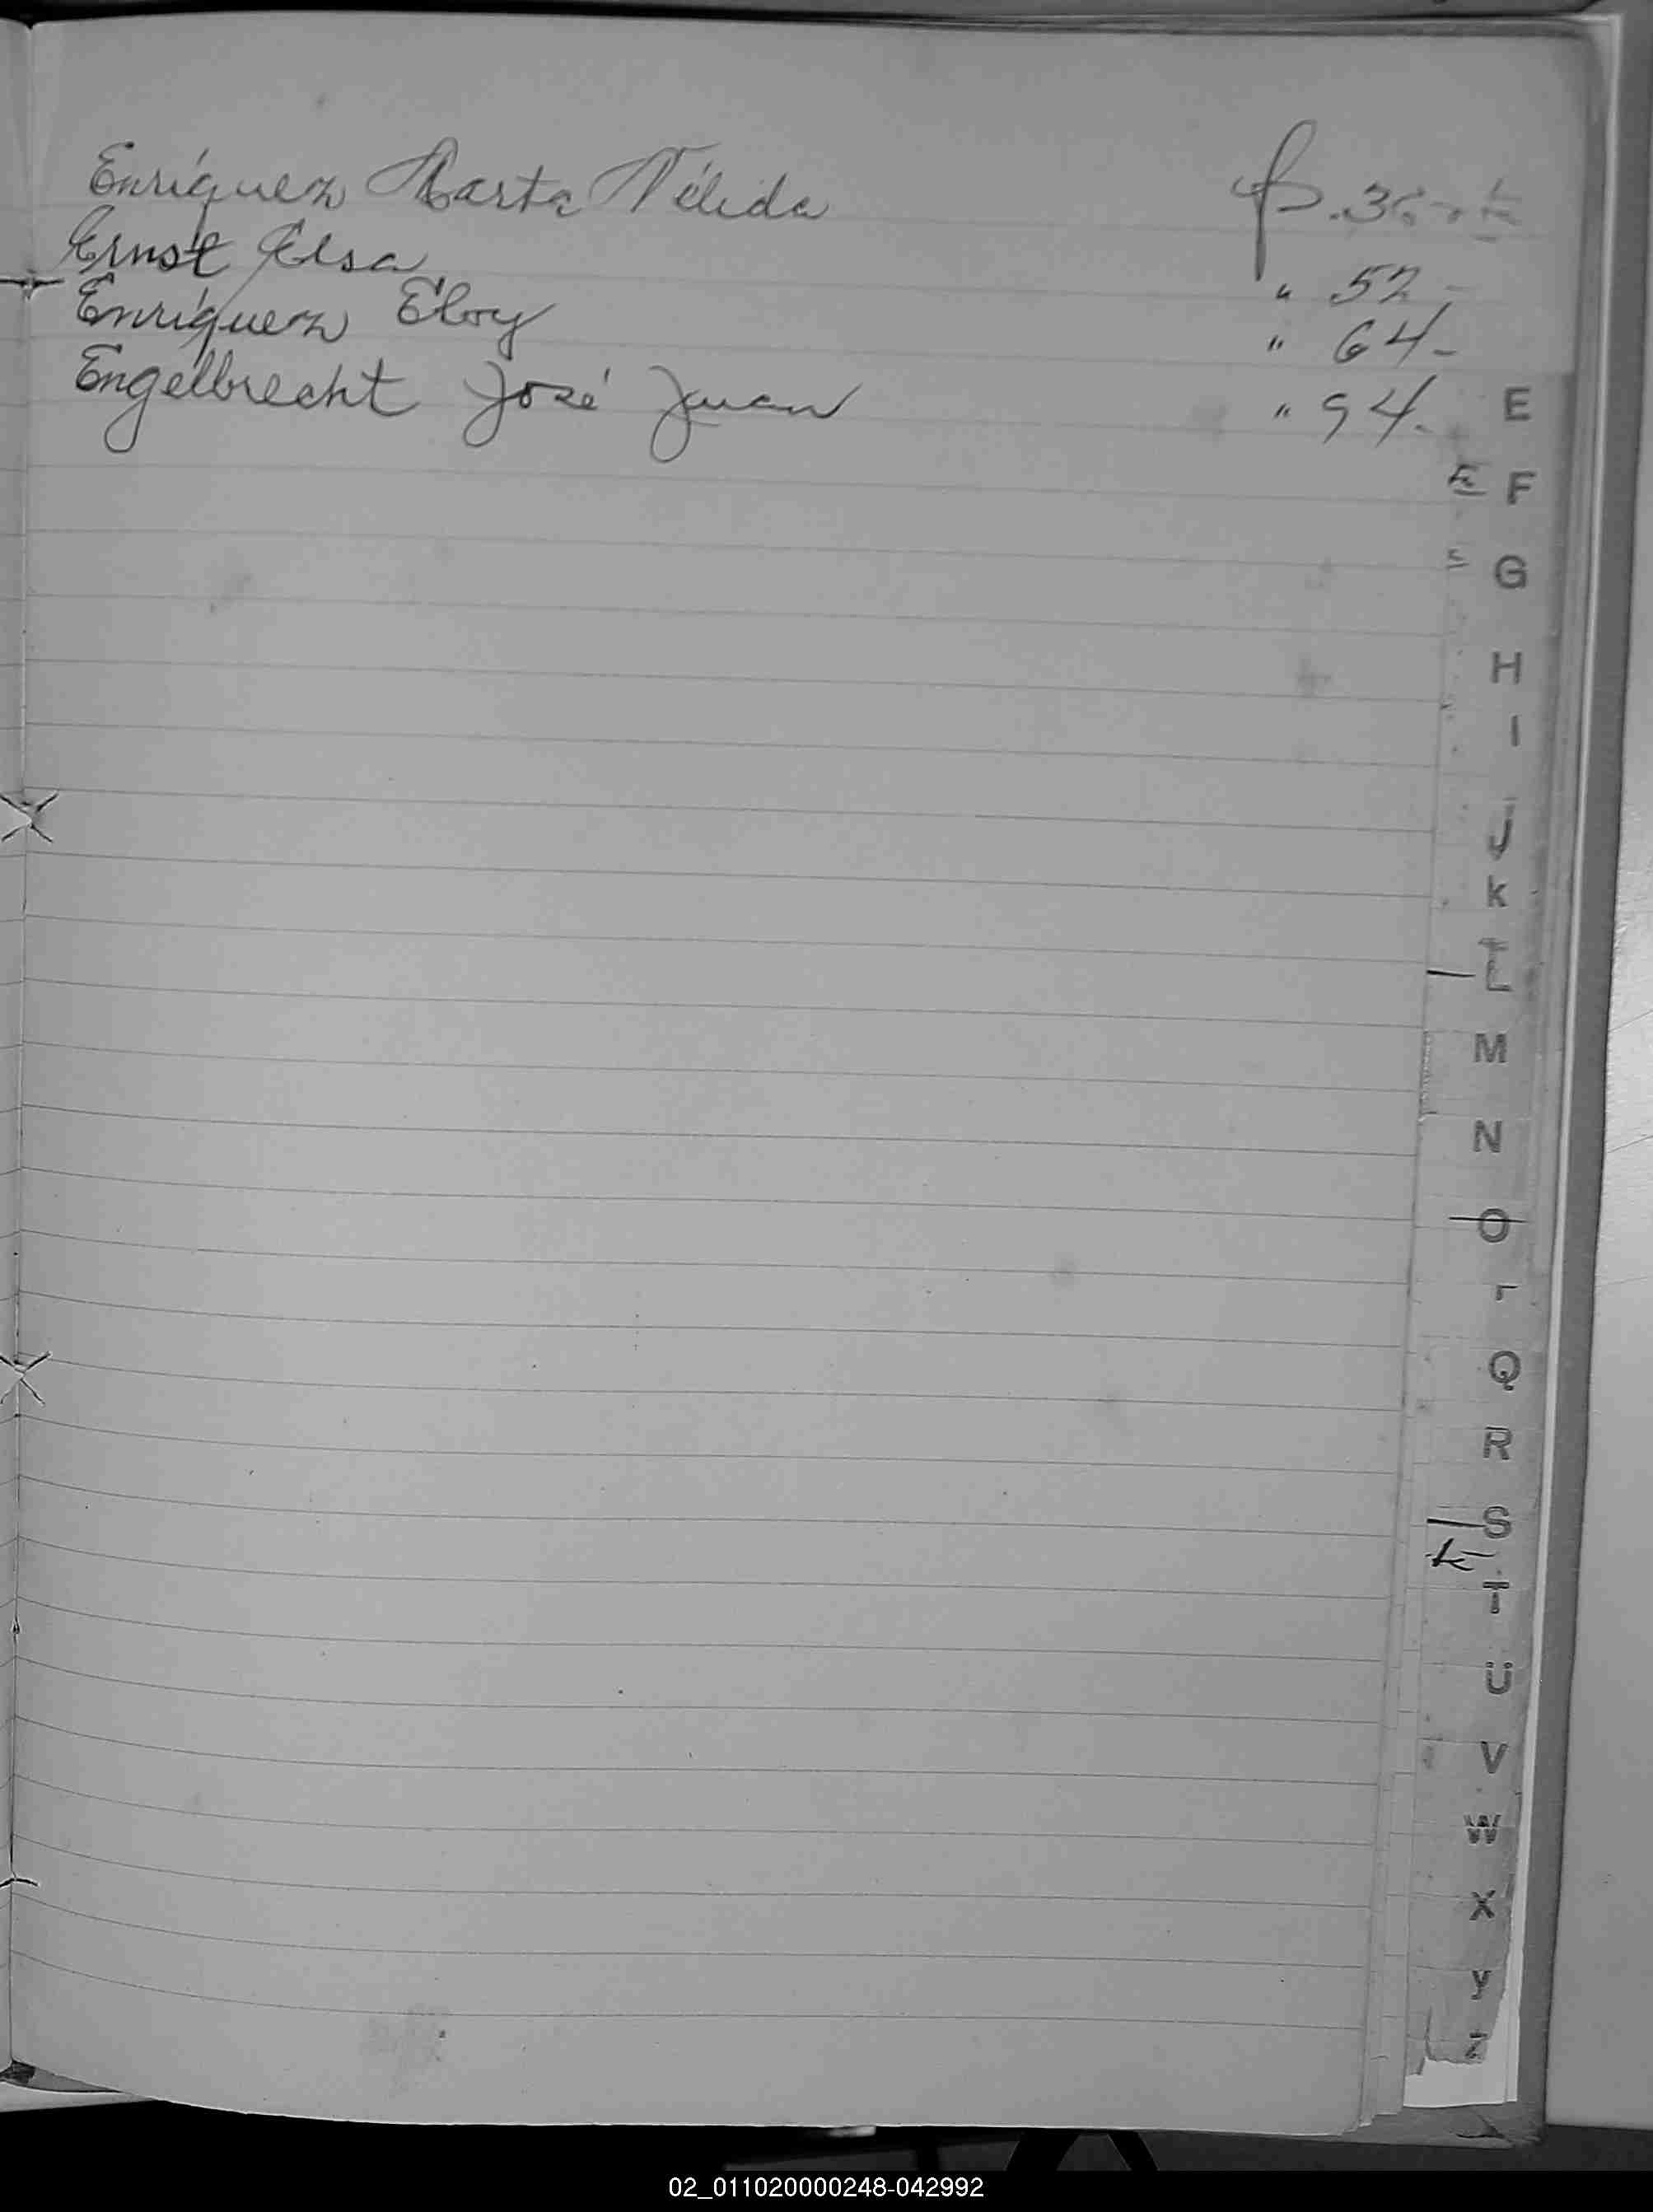 Enríquez Marta Nélida
Ernst Elsa " 52-
Enríquez Eloy " 64-
Engelbrecht José Juan " 94.
E
F
G
H
I
J
K
L
M
N
O
Q
R
S
T
U
V
W
X
Y
Z
02_011020000248-042992